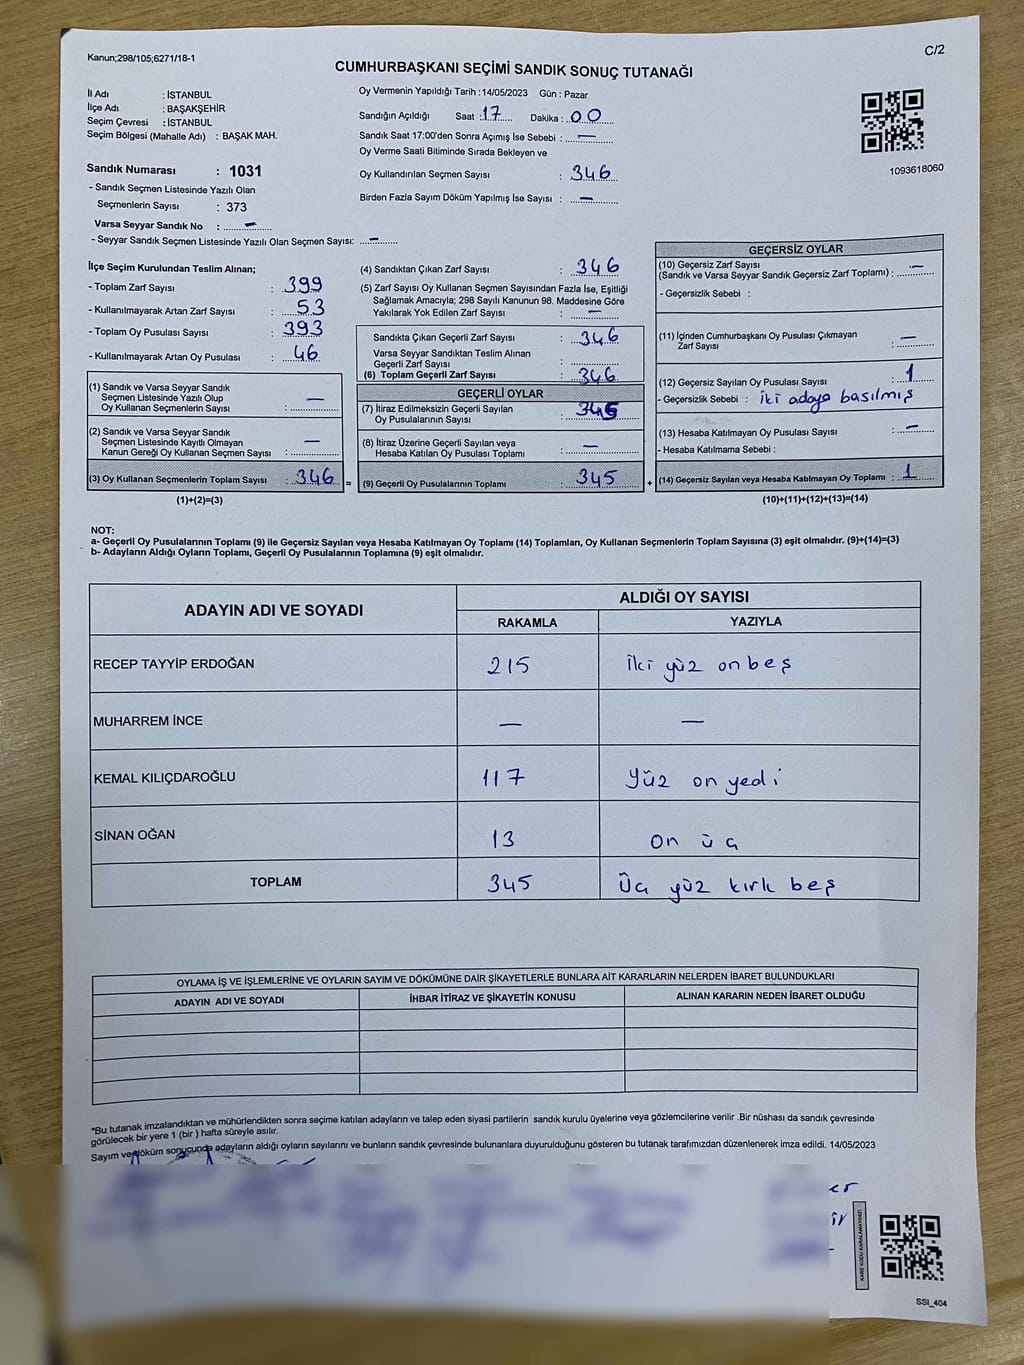 Kanun;298/105;6271/18-1
C/2
CUMHURBAŞKANI SEÇİMİ SANDIK SONUÇ TUTANAĞI
İl Adı : İSTANBUL
İlçe Adı : BAŞAKŞEHİR
Seçim Çevresi : İSTANBUL
Seçim Bölgesi (Mahalle Adı) : BAŞAK MAH.
Sandık Numarası : 1031
- Sandık Seçmen Listesinde Yazılı Olan
Seçmenlerin Sayısı : 373
Varsa Seyyar Sandık No : —
- Seyyar Sandık Seçmen Listesinde Yazılı Olan Seçmen Sayısı: —
Oy Vermenin Yapıldığı Tarih : 14/05/2023 Gün : Pazar
Sandığın Açıldığı Saat : 17 Dakika : 00
Sandık Saat 17:00'den Sonra Açımış İse Sebebi : —
Oy Verme Saati Bitiminde Sırada Bekleyen ve
Oy Kullandırılan Seçmen Sayısı : 346
Birden Fazla Sayım Döküm Yapılmış İse Sayısı : —
1093618060
İlçe Seçim Kurulundan Teslim Alınan;
- Toplam Zarf Sayısı : 399
- Kullanılmayarak Artan Zarf Sayısı : 53
- Toplam Oy Pusulası Sayısı : 393
- Kullanılmayarak Artan Oy Pusulası : 46
(1) Sandık ve Varsa Seyyar Sandık
Seçmen Listesinde Yazılı Olup
Oy Kullanan Seçmenlerin Sayısı : —
(2) Sandık ve Varsa Seyyar Sandık
Seçmen Listesinde Kayıtlı Olmayan
Kanun Gereği Oy Kullanan Seçmen Sayısı : —
(3) Oy Kullanan Seçmenlerin Toplam Sayısı : 346 =
(1)+(2)=(3)
(4) Sandıktan Çıkan Zarf Sayısı : 346
(5) Zarf Sayısı Oy Kullanan Seçmen Sayısından Fazla İse, Eşitliği
Sağlamak Amacıyla; 298 Sayılı Kanunun 98. Maddesine Göre
Yakılarak Yok Edilen Zarf Sayısı : —
Sandıkta Çıkan Geçerli Zarf Sayısı : 346
Varsa Seyyar Sandıktan Teslim Alınan
Geçerli Zarf Sayısı :
(6) Toplam Geçerli Zarf Sayısı : 346
GEÇERLİ OYLAR
(7) İtiraz Edilmeksizin Geçerli Sayılan
Oy Pusulalarının Sayısı : 345
(8) İtiraz Üzerine Geçerli Sayılan veya
Hesaba Katılan Oy Pusulası Toplamı : —
(9) Geçerli Oy Pusulalarının Toplamı : 345 +
GEÇERSİZ OYLAR
(10) Geçersiz Zarf Sayısı
(Sandık ve Varsa Seyyar Sandık Geçersiz Zarf Toplamı) : —
- Geçersizlik Sebebi :
(11) İçinden Cumhurbaşkanı Oy Pusulası Çıkmayan
Zarf Sayısı : —
(12) Geçersiz Sayılan Oy Pusulası Sayısı : 1
- Geçersizlik Sebebi : iki adaya basılmış
(13) Hesaba Katılmayan Oy Pusulası Sayısı : —
- Hesaba Katılmama Sebebi :
(14) Geçersiz Sayılan veya Hesaba Katılmayan Oy Toplamı : 1
(10)+(11)+(12)+(13)=(14)
NOT:
a- Geçerli Oy Pusulalarının Toplamı (9) ile Geçersiz Sayılan veya Hesaba Katılmayan Oy Toplamı (14) Toplamları, Oy Kullanan Seçmenlerin Toplam Sayısına (3) eşit olmalıdır. (9)+(14)=(3)
b- Adayların Aldığı Oyların Toplamı, Geçerli Oy Pusulalarının Toplamına (9) eşit olmalıdır.
ADAYIN ADI VE SOYADI
ALDIĞI OY SAYISI
RAKAMLA YAZIYLA
RECEP TAYYİP ERDOĞAN 215 İki yüz on beş
MUHARREM İNCE — —
KEMAL KILIÇDAROĞLU 117 Yüz on yedi
SİNAN OĞAN 13 On üç
TOPLAM 345 Üç yüz kırk beş
OYLAMA İŞ VE İŞLEMLERİNE VE OYLARIN SAYIM VE DÖKÜMÜNE DAİR ŞİKAYETLERLE BUNLARA AİT KARARLARIN NELERDEN İBARET BULUNDUKLARI
ADAYIN ADI VE SOYADI İHBAR İTİRAZ VE ŞİKAYETİN KONUSU ALINAN KARARIN NEDEN İBARET OLDUĞU
*Bu tutanak imzalandıktan ve mühürlendikten sonra seçime katılan adayların ve talep eden siyasi partilerin sandık kurulu üyelerine veya gözlemcilerine verilir .Bir nüshası da sandık çevresinde
görülecek bir yere 1 (bir ) hafta süreyle asılır.
Sayım ve döküm sonucunda adayların aldığı oyların sayılarını ve bunların sandık çevresinde bulunanlara duyurulduğunu gösteren bu tutanak tarafımızdan düzenlenerek imza edildi. 14/05/2023
KARE KODU KARALAMAYINIZ!
SSI_404